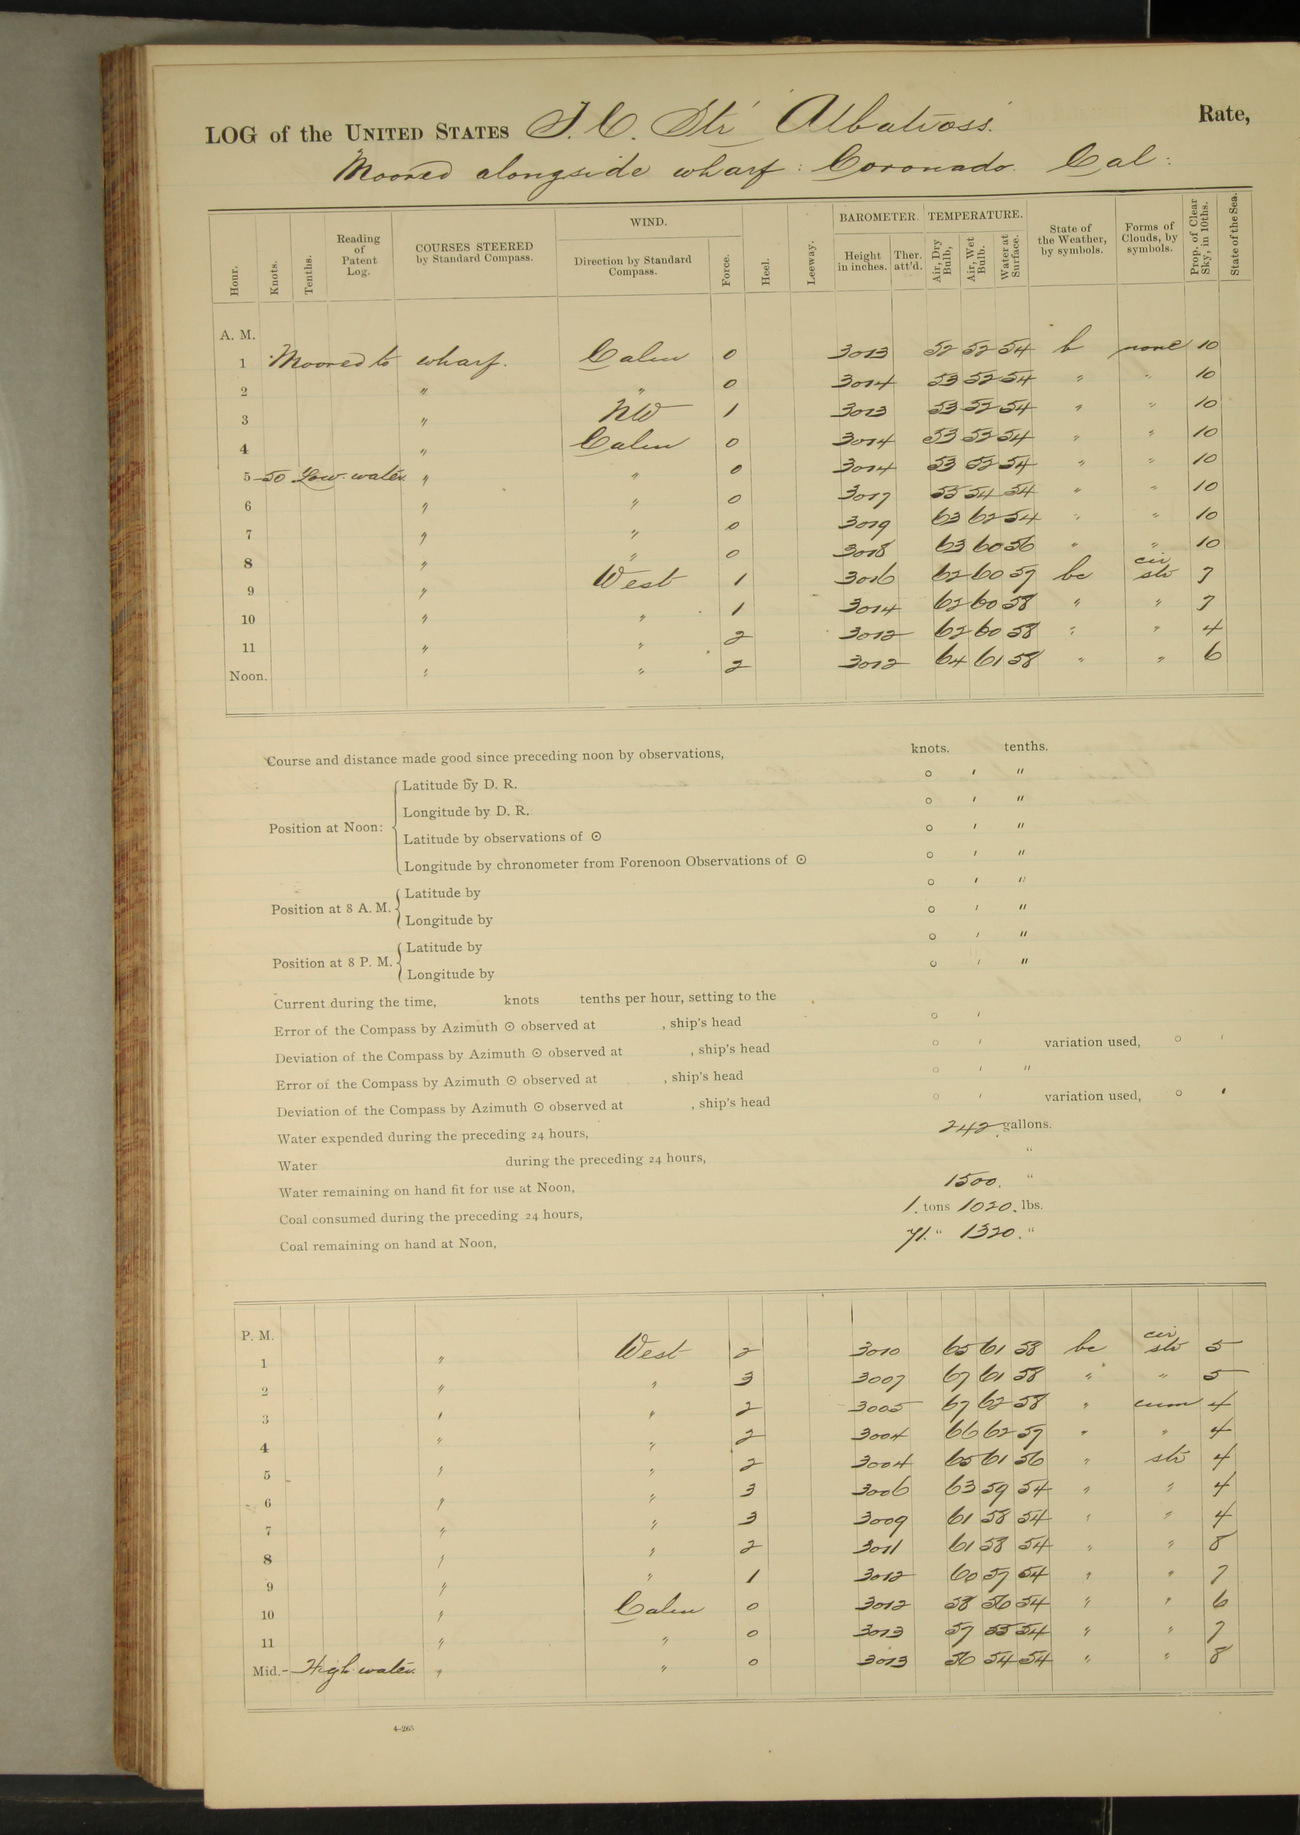 LOG of the UNITED STATES F. C. Str Albatross. Rate,
Moored alongside wharf: Coronado. Cal:
Hour. Knots. Tenths. Reading of Patent Log. COURSES STEERED by Standard Compass. WIND. Direction by Standard Compass. Force. Heel. Leeway. BAROMETER. Height in inches. Ther. att'd. TEMPERATURE. Air, Dry Bulb, Air, Wet Bulb. Water at Surface. State of the Weather, by symbols. Forms of Clouds, by symbols. Prop. of Clear Sky, in 10ths. State of the Sea.
A. M.
1 Moored to wharf. Calm 0 3013 52 52 54 b none 10
2 " " 0 3014 53 52 54 " " 10
3 " NW 1 3013 53 52 54 " " 10
4 " Calm 0 3014 53 52 54 " " 10
5-50 Low water " " 0 3014 53 52 54 " " 10
6 " " 0 3017 55 54 54 " " 10
7 " " 0 3019 63 62 54 " " 10
8 " " 0 3018 63 60 56 " " 10
9 " West 1 3016 62 60 57 bc cir str 7
10 " " 1 3014 62 60 58 " " 7
11 " " 2 3012 62 60 58 " " 4
Noon. " " 2 3012 64 61 58 " " 6
Course and distance made good since preceding noon by observations, knots. tenths.
Position at Noon: Latitude by D. R. ° ' "
Longitude by D. R. ° ' "
Latitude by observations of ☉ ° ' "
Longitude by chronometer from Forenoon Observations of ☉ ° ' "
Position at 8 A. M. Latitude by ° ' "
Longitude by ° ' "
Position at 8 P. M. Latitude by ° ' "
Longitude by ° ' "
Current during the time, knots tenths per hour, setting to the
Error of the Compass by Azimuth ☉ observed at , ship's head ° '
Deviation of the Compass by Azimuth ☉ observed at , ship's head ° ' variation used, ° '
Error of the Compass by Azimuth ☉ observed at , ship's head ° ' "
Deviation of the Compass by Azimuth ☉ observed at , ship's head ° ' variation used, ° '
Water expended during the preceding 24 hours, 242 gallons.
Water during the preceding 24 hours, "
Water remaining on hand fit for use at Noon, 1500. "
Coal consumed during the preceding 24 hours, 1. tons 1020. lbs.
Coal remaining on hand at Noon, 71. " 1320. "
P. M.
1 " West 2 3010 65 61 58 bc cir str 5
2 " " 3 3007 67 61 58 " " 5
3 " " 2 3005 67 62 58 " cum 4
4 " " 2 3004 66 62 57 " " 4
5 " " 2 3004 65 61 56 " str 4
6 " " 3 3006 63 59 54 " " 4
7 " " 3 3009 61 58 54 " " 4
8 " " 2 3011 61 58 54 " " 8
9 " " 1 3012 60 57 54 " " 7
10 " Calm 0 3012 58 56 54 " " 6
11 " " 0 3013 57 55 54 " " 7
Mid.- High water. " " 0 3013 56 54 54 " " 8
4-265